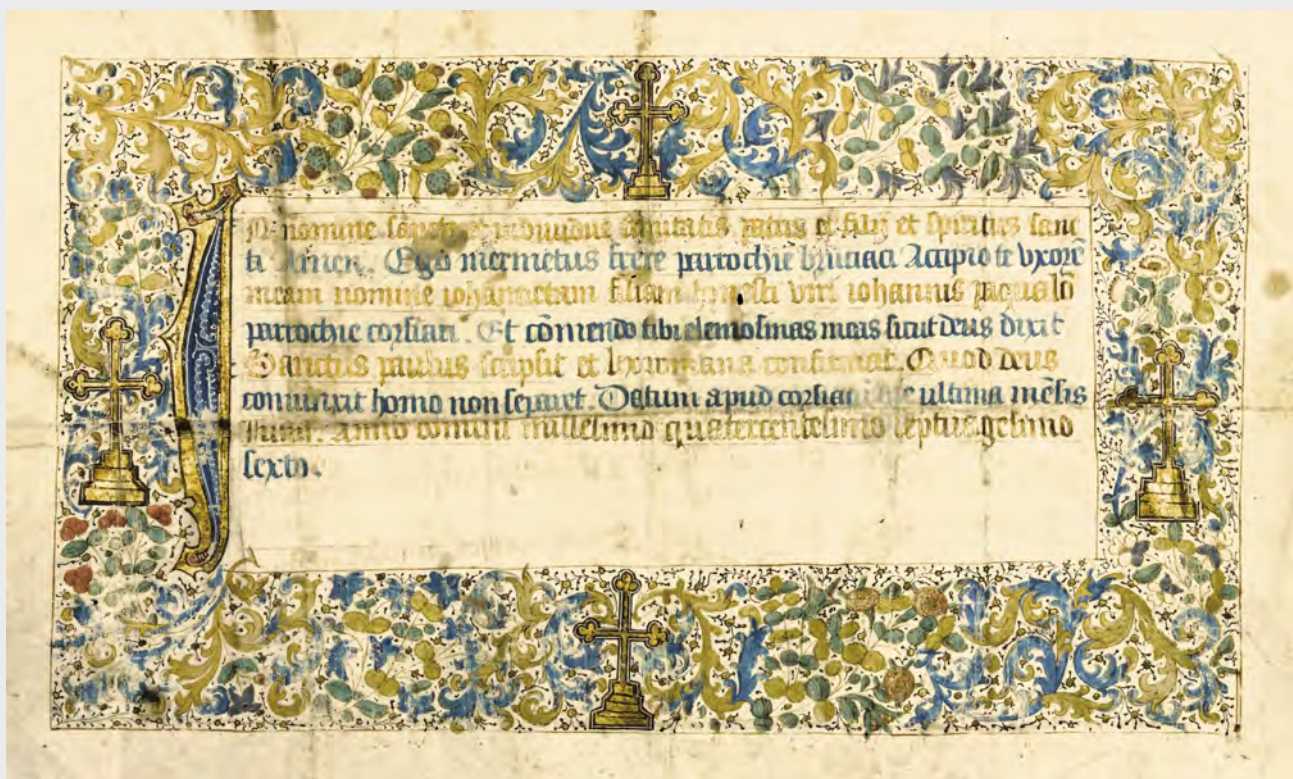 In nomine sancte et individue trinitatis patris et filij et spiritus sanc
ti Amen. Ego mermetus parrochie Accipio te vxorē
meam nomine iohannetam filiam honesti viri iohannis
parrochie corsiaci. Et cōmendo tibi elemosinas meas sicut deus dixit
Sanctus paulus scripsit et lex romana confirmat. Quod deus
coniunxit homo non separet. Datum apud corsiaci die ultima mēsis
Anno domini millesimo quatercentesimo septuagesimo
sexto.